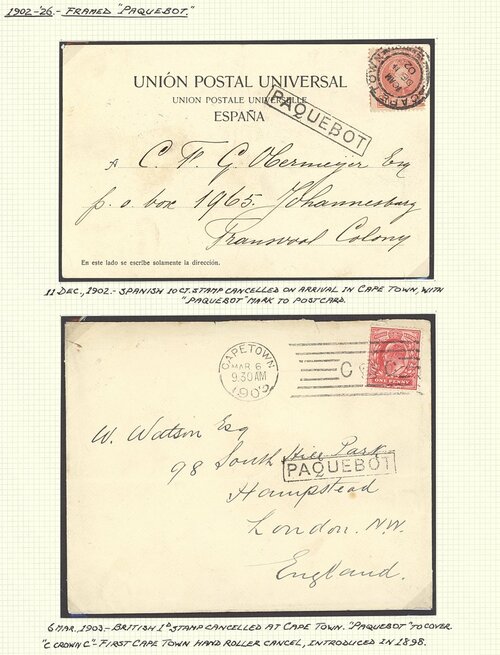 1902-'26.- FRAMED "PAQUEBOT."
UNIÓN POSTAL UNIVERSAL
UNION POSTALE UNIVERSELLE
ESPAÑA
PAQUEBOT
CAPE TOWN
DE
02
A C. F. G. Obermeyer Esq
p. o box 1965. Johannesburg
Transvool Colony
En este lado se escribe solamente la dirección.
11 DEC., 1902.- SPANISH 10CT. STAMP CANCELLED ON ARRIVAL IN CAPE TOWN, WITH
"PAQUEBOT" MARK TO POSTCARD.
CAPETOWN
MAR 6
9.30 AM
1903
C C
ONE PENNY
W. Watson Esq
98 South Hill Park
PAQUEBOT
Hampstead
London. N.W.
England.
6 MAR., 1903.- BRITISH 1ᴰ STAMP CANCELLED AT CAPE TOWN. "PAQUEBOT" TO COVER.
"C CROWN C" - FIRST CAPE TOWN HAND ROLLER CANCEL, INTRODUCED IN 1898.